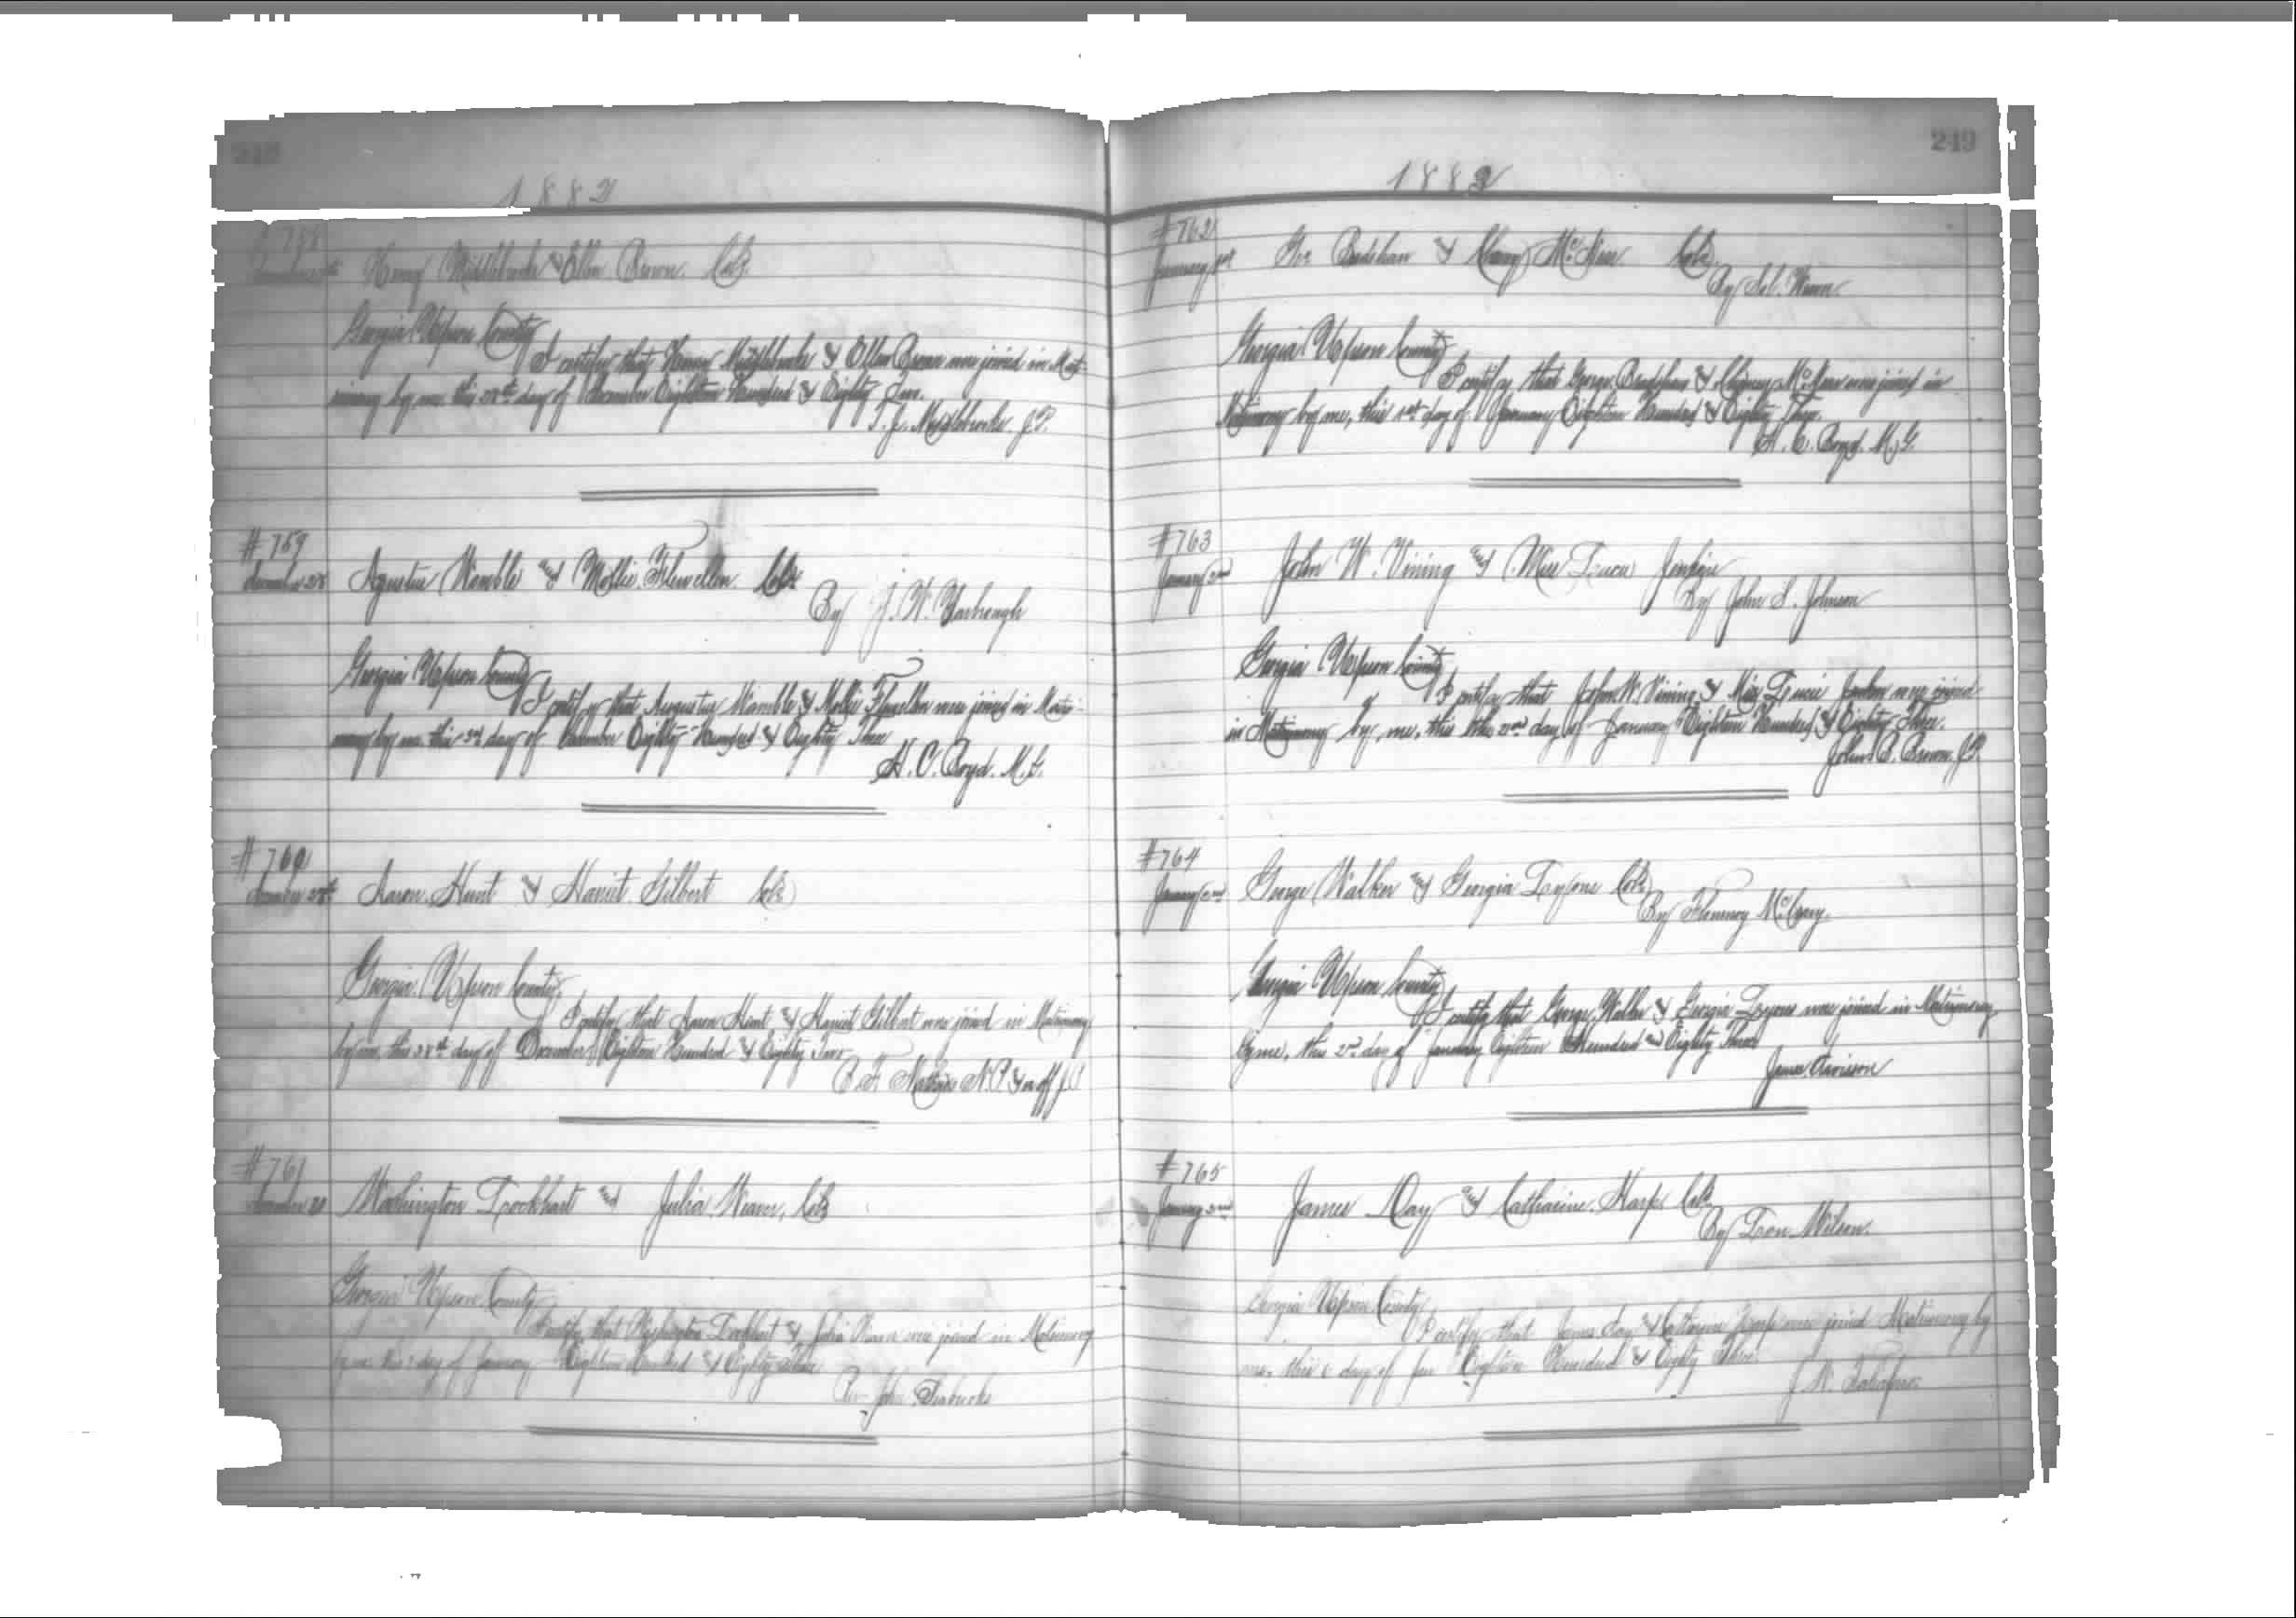 1882
Henry Middlebrooks & Ellen Brown. Col.
Georgia Upson County
I certify that Henry Middlebrooks & Ellen Brown were joined in Mat-
rimony by me this 28th day of December Eighteen Hundred & Eighty Two.
T. J. Middlebrooks. J.P.
# 759
December 28 Agustus Womble and Mollie Flewellen Col.
By J. W. Yarbrough
Georgia Upson County
I certify that Augustus Womble & Mollie Flewellen were joined in Matri-
mony by me this day of December Eighty Hundred & Eighty Three
H. C. Boyd. M.G.
# 760
December 28th Aaron Hunt & Harriet Gilbert Col.
Georgia Upson County
I certify that Aaron Hunt and Harriet Gilbert were joined in Matrimony
by me this 28th day of December Eighteen Hundred & Eighty Two
N.P. & ex off J.P.
# 761
December Washington Lockhart and Julia Weaver, Col
Georgia Upson County
I certify that Washington Lockhart & Julia Weaver were joined in Matrimony
by me this day of January Eighteen Hundred & Eighty Three
Rev. John
249
1882
# 762
January 1st Geo Bradshaw & Col.
By Sol.
Georgia Upson County
I certify that George Bradshaw & were joined in
Matrimony by me, this 1st day of January Eighteen Hundred & Eighty Three.
H. C. Boyd. M.G.
# 763
January 2nd John W. Vining and Miss
By John S. Johnson
Georgia Upson County
I certify that John W. Vining & Miss were joined
in Matrimony by me, this the 2nd day of January Eighteen Hundred & Eighty Three.
John B. Brown. J.P.
# 764
January 2nd George Walker and Georgia Lyons Col.
By Flemmoy McCrary
Georgia Upson County
I certify that George Walker & Georgia Lyons were joined in Matrimony
by me, this 2nd day of January Eighteen Hundred and Eighty Three
James
# 765
January 2nd James Day and Catharine Harp Col.
By Wilson.
Georgia Upson County
I certify that James Day & Catharine Harp were joined Matrimony by
me, this day of Jan Eighteen Hundred & Eighty Three
J. W.